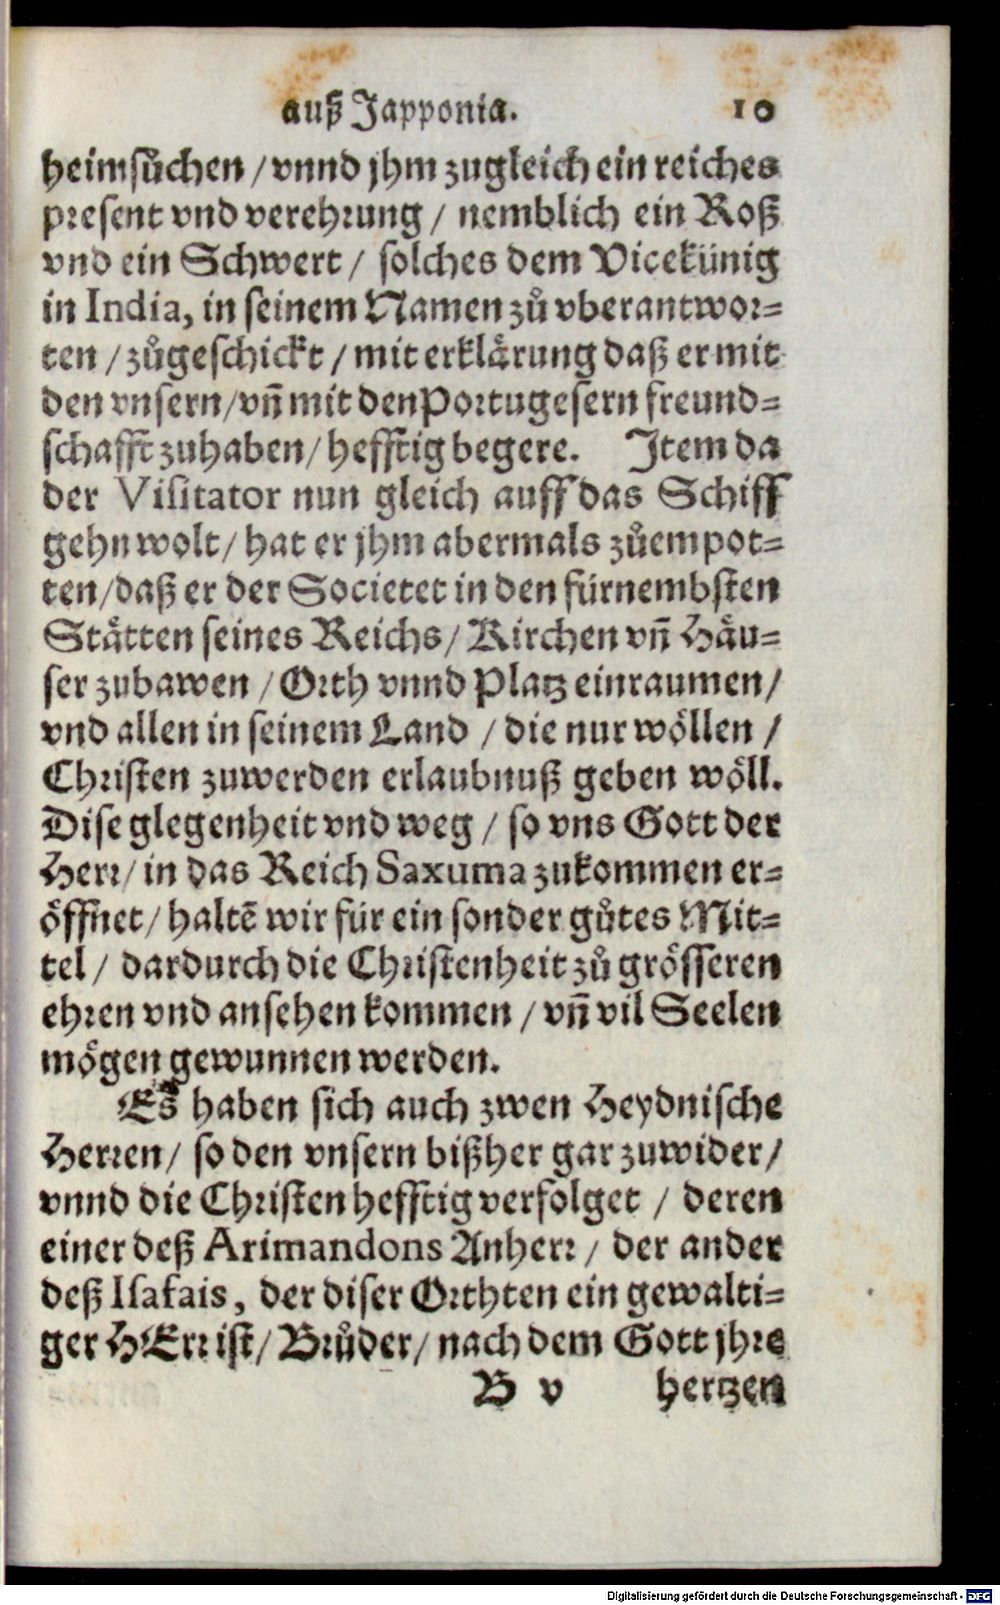 auß Japponia. 10
heimsůchen / vnnd jhm zugleich ein reiches
present vnd verehrung / nemblich ein Roß
vnd ein Schwert / solches dem Vicekünig
in India, in seinem Namen zů vberantwor=
ten / zůgeschickt / mit erklärung daß er mit
den vnsern / vñ mit den Portugesern freund=
schafft zuhaben / hefftig begere. Item da
der Visitator nun gleich auff das Schiff
gehn wolt / hat er jhm abermals zůempot=
ten / daß er der Societet in den fürnembsten
Stätten seines Reichs / Kirchen vñ Häu=
ser zubawen / Orth vnnd Platz einraumen /
vnd allen in seinem Land / die nur wöllen /
Christen zuwerden erlaubnuß geben wöll.
Dise glegenheit vnd weg / so vns Gott der
Herr / in das Reich Saxuma zukommen er=
öffnet / haltẽ wir für ein sonder gůtes Mit=
tel / dardurch die Christenheit zů grösseren
ehren vnd ansehen kommen / vñ vil Seelen
mögen gewunnen werden.
Es haben sich auch zwen Heydnische
Herren / so den vnsern bißher gar zuwider /
vnnd die Christen hefftig verfolget / deren
einer deß Arimandons Anherr / der ander
deß Isafais, der diser Orthten ein gewalti=
ger HErr ist / Brůder / nach dem Gott jhre
B v hertzen
Digitalisierung gefördert durch die Deutsche Forschungsgemeinschaft - DFG